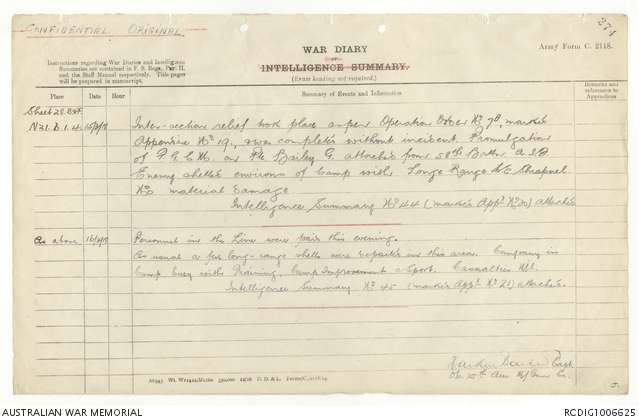 CONFIDENTIAL ORIGINAL
274
WAR DIARY
or
INTELLIGENCE SUMMARY.
(Erase heading not required.)
Army Form C. 2118.
Instructions regarding War Diaries and Intelligence
Summaries are contained in F. S. Regs., Part II.
and the Staff Manual respectively. Title pages
will be prepared in manuscript.
Place
Date
Hour
Summary of Events and Information
Remarks and
references to
Appendices
Sheet 28
N31. 1.4. Inter-section relief took place as per Operation Order No 78, marked
Appendix No 19, & was completed without incident. Promulgation
of F.G.C.M. on Pte Bailey G. attached from 58th Battn. A.I.F.
Enemy shelled environs of Camp with Long Range H.E. Shrapnel.
No material damage
Intelligence Summary No 44 (marked App. No 20) attached
As above Personnel in the Line were paid this evening.
As usual a few long-range shells were deposited in this area. Company in
Camp busy with Training, Camp Improvement & Sport. Casualties Nil.
Intelligence Summary No 45 (marked App. No 21) attached.
Capt
15th Aus M/Gun Co.
AUSTRALIAN WAR MEMORIAL
RCDIG1006625